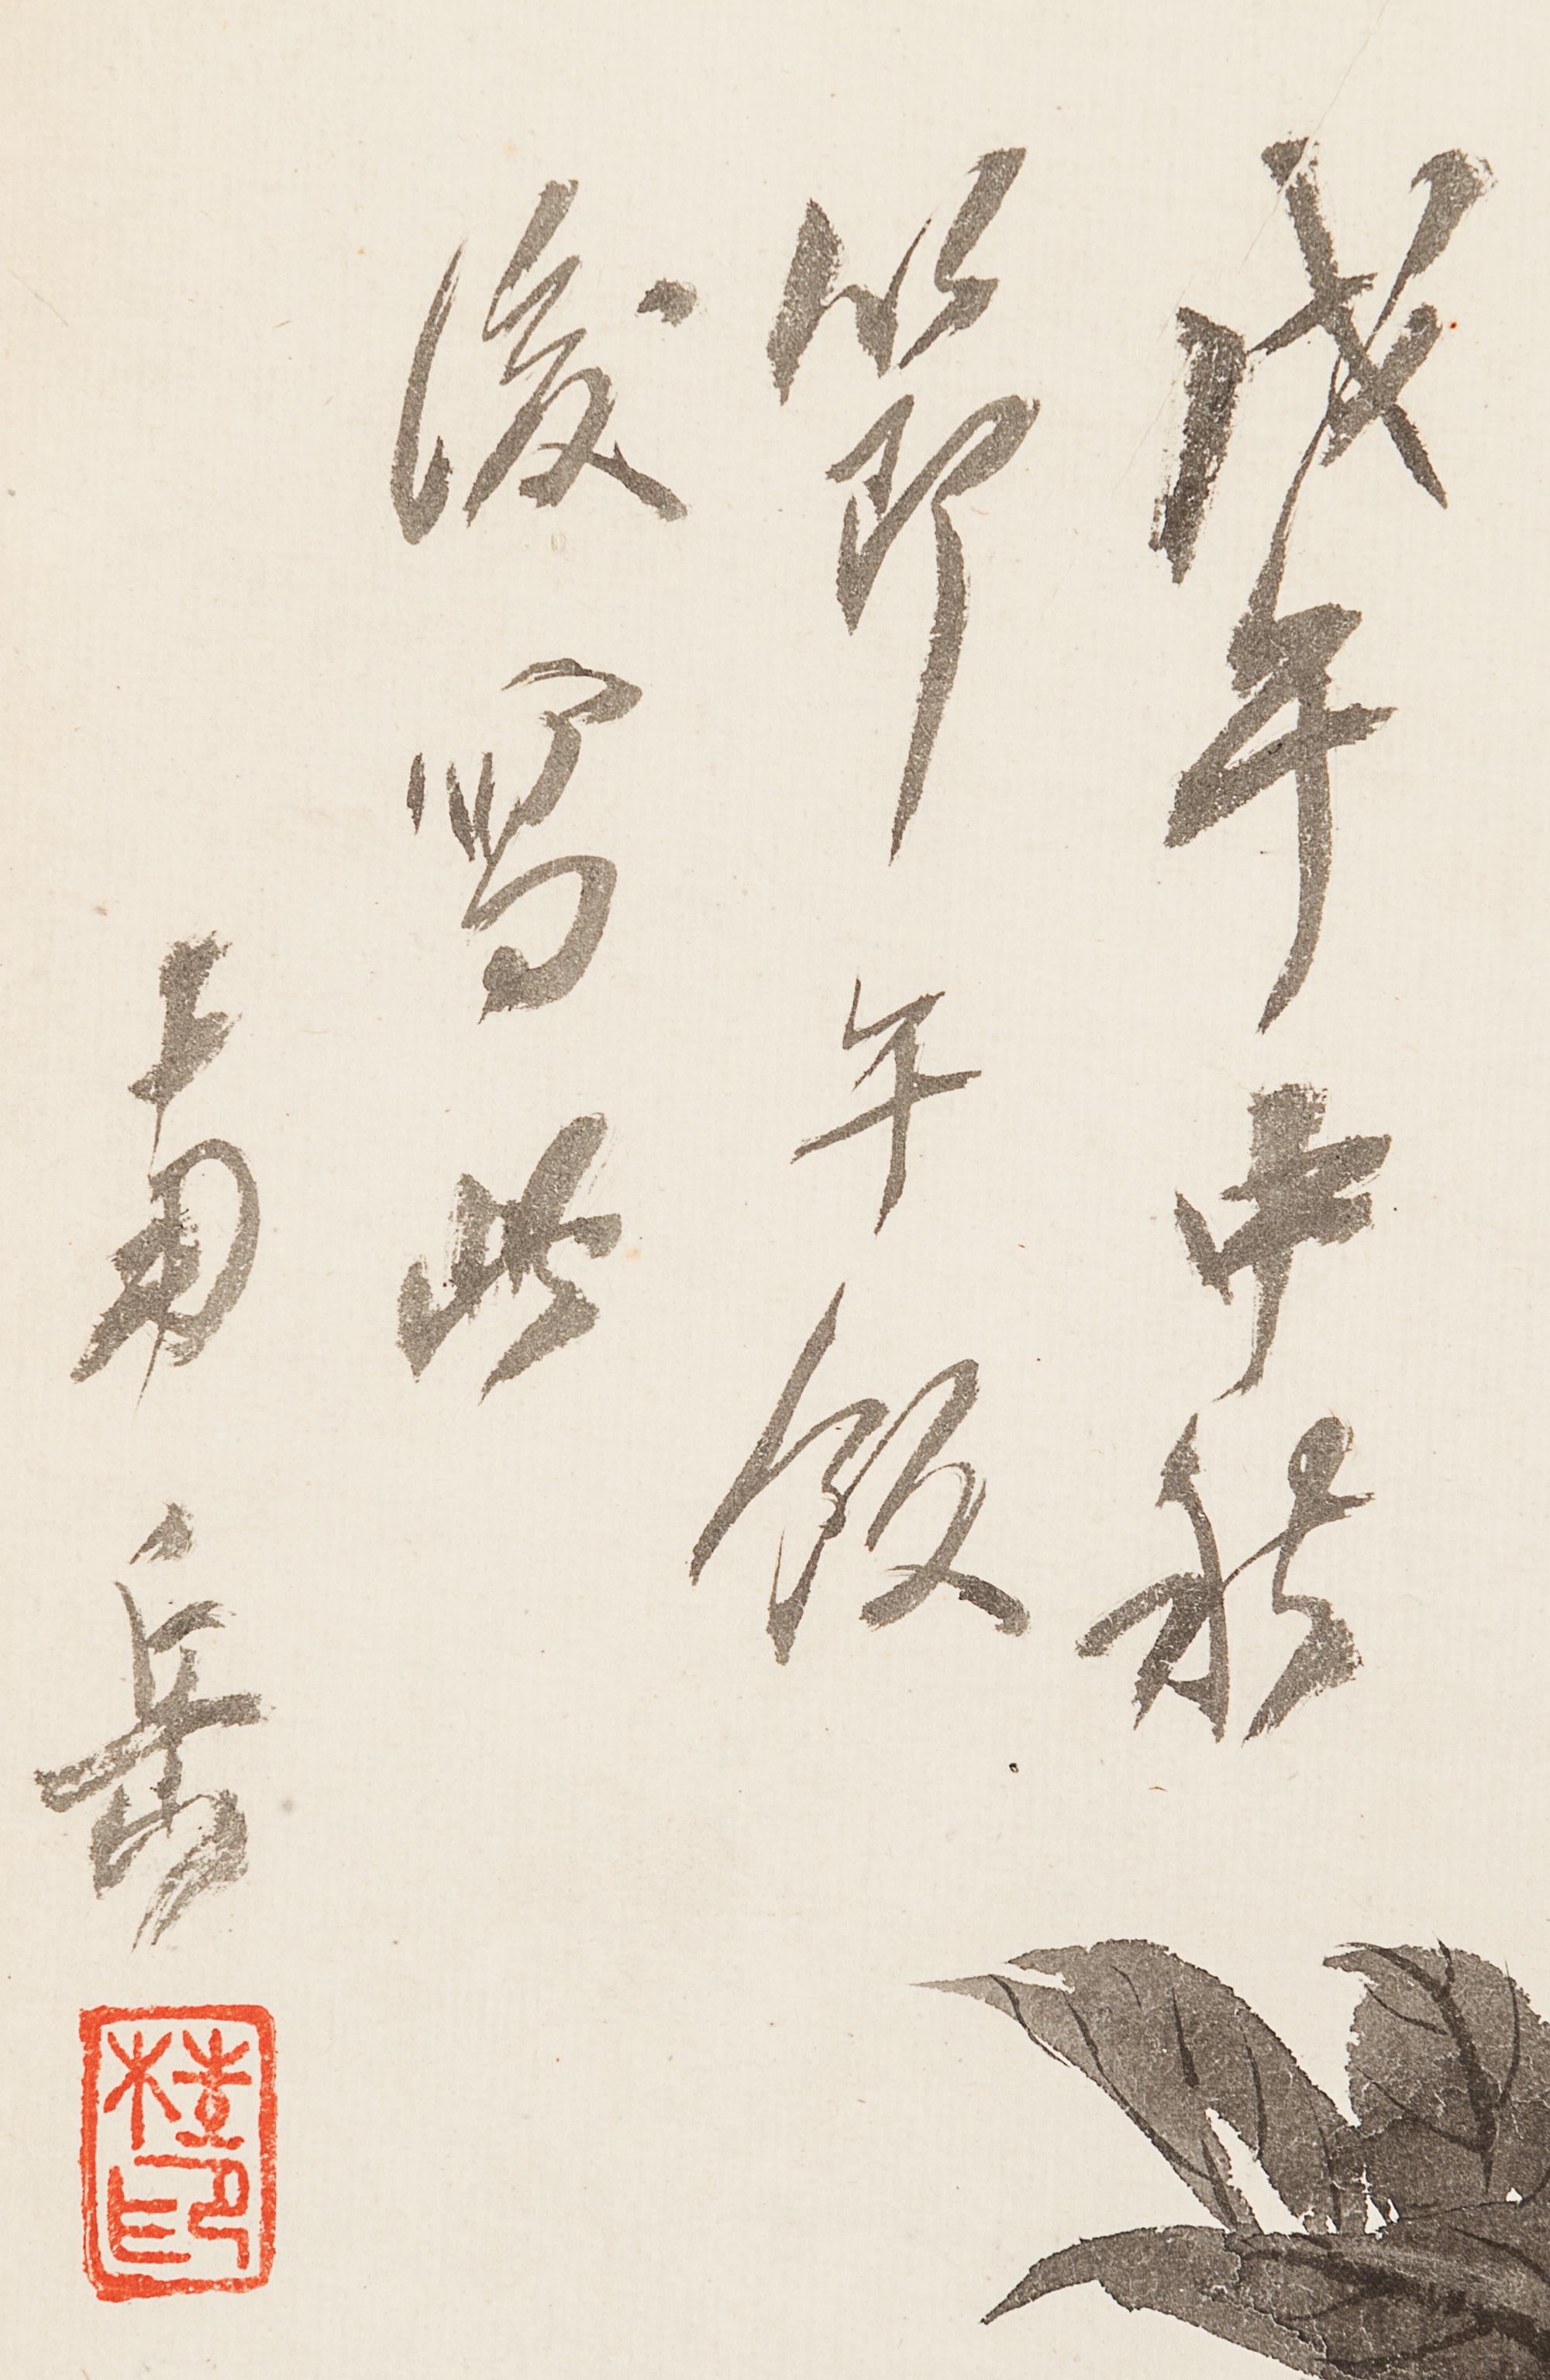 戊午中秋
節午飯
後寫此
南岳
桂印